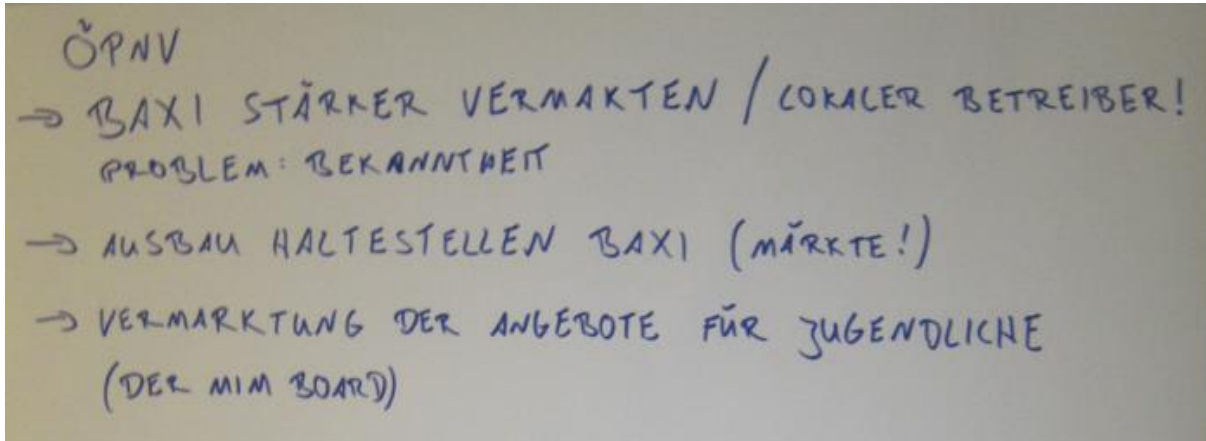 ÖPNV
→ BAXI STÄRKER VERMAKTEN / LOKALER BETREIBER!
PROBLEM: BEKANNTHEIT
→ AUSBAU HALTESTELLEN BAXI (MÄRKTE!)
→ VERMARKTUNG DER ANGEBOTE FÜR JUGENDLICHE
(DER MIM BOARD)